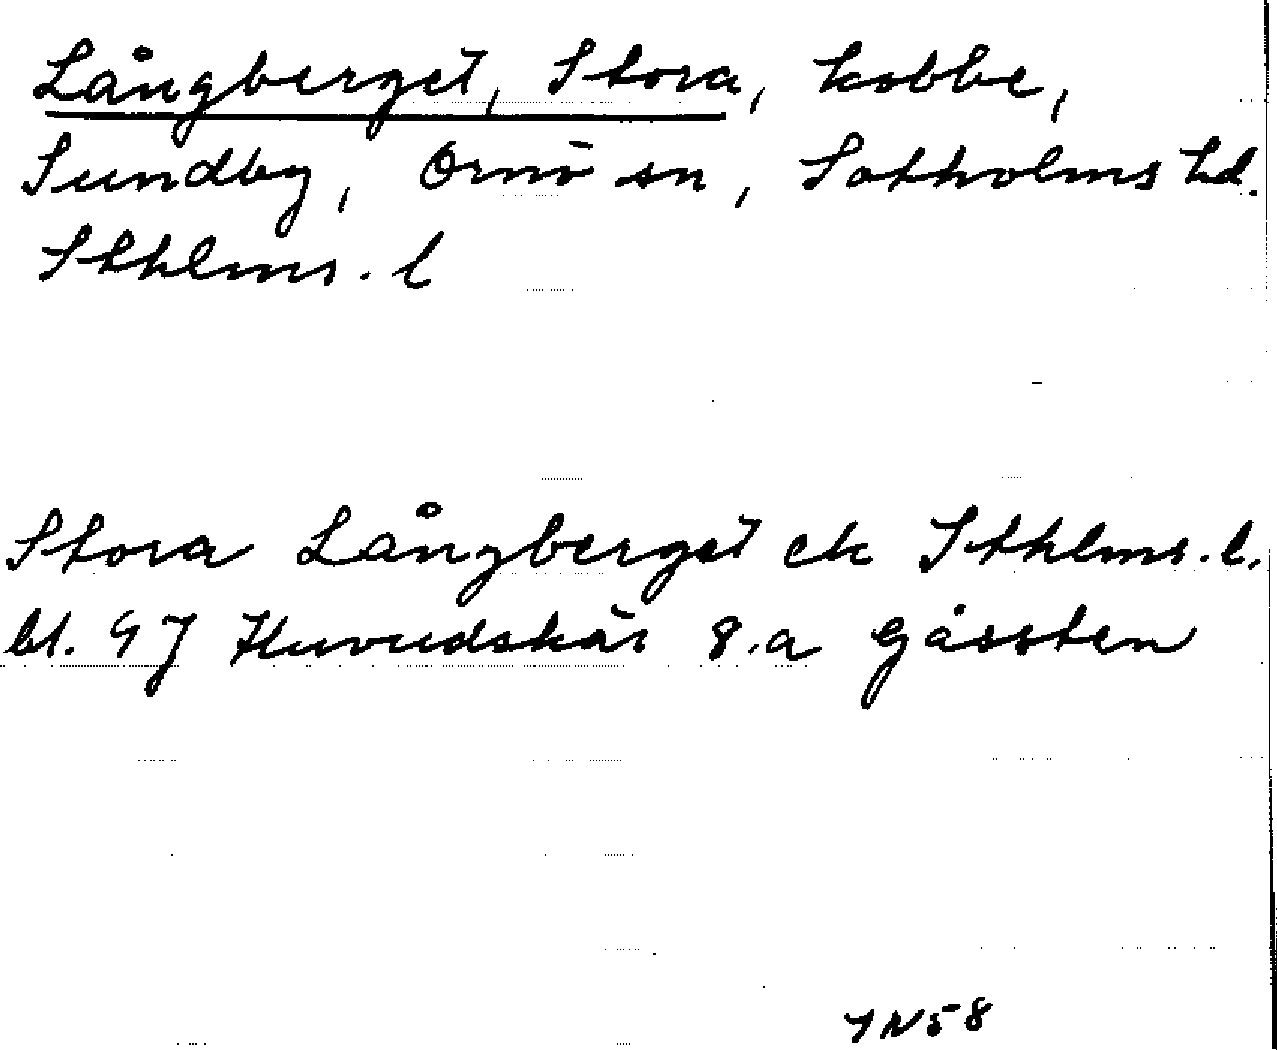 Långberget, Stora, kobbe,
Sundby, Ornö sn, Sotholms hd.
Sthlms. l
Stora Långberget ek Sthlms. l.
bl. 97 Huvudskär 8.a Gåssten